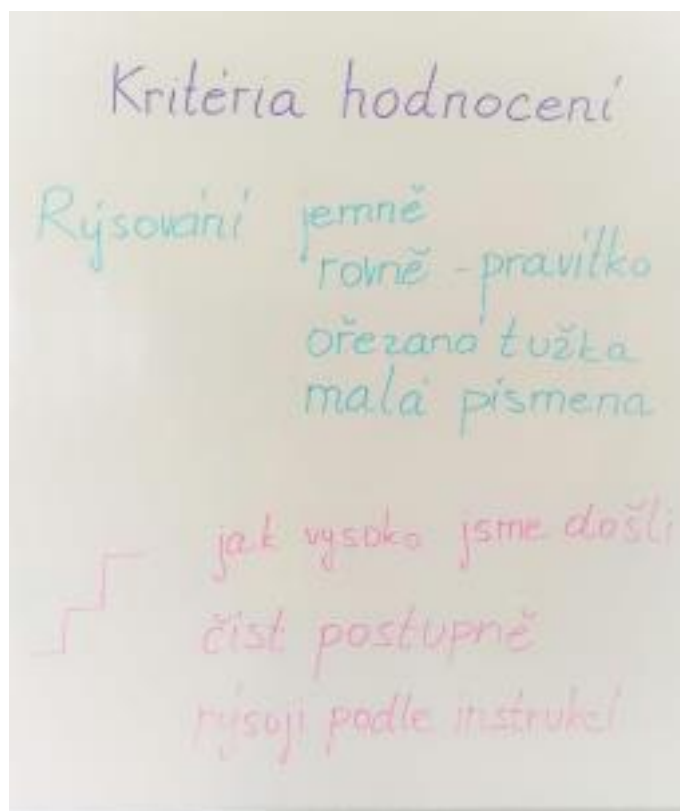 Kritéria hodnocení
Rýsování jemně
rovně - pravítko
ořezaná tužka
malá písmena
jak vysoko jsme došli
číst postupně
rýsoji podle instrukcí